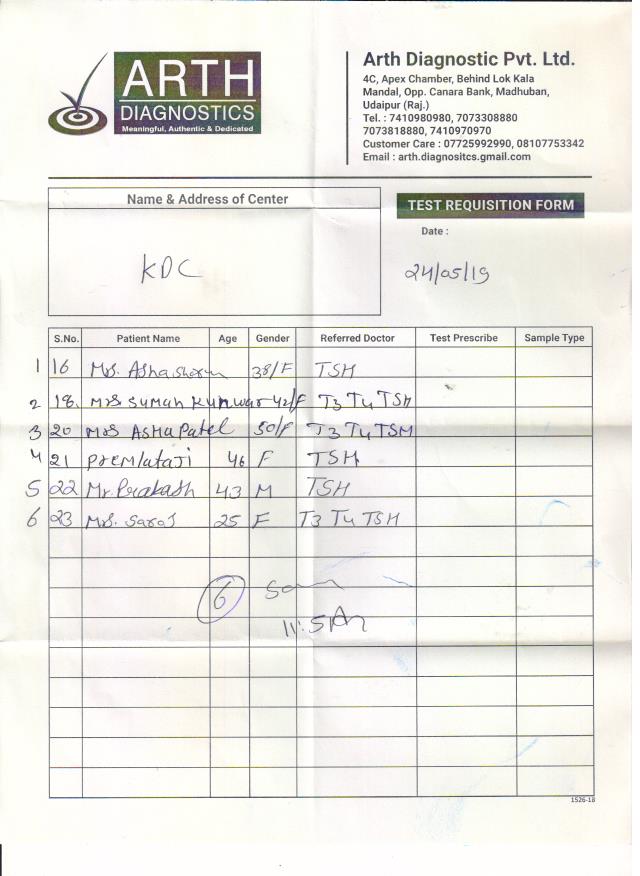 ARTH
DIAGNOSTICS
Meaningful, Authentic & Dedicated
Arth Diagnostic Pvt. Ltd.
4C, Apex Chamber, Behind Lok Kala
Mandal, Opp. Canara Bank, Madhuban,
Udaipur (Raj.)
Tel. : 7410980980, 7073308880
7073818880, 7410970970
Customer Care : 07725992990, 08107753342
Email : arth.diagnositcs.gmail.com
Name & Address of Center
KDC
TEST REQUISITION FORM
Date :
24/05/19
S.No. Patient Name Age Gender Referred Doctor Test Prescribe Sample Type
1 16 Mrs. Asha 38/F TSH
2 18. Mrs Suman Kunwar 42/F T3 T4 TSH
3 20 Mrs Asha Patel 50/F T3 T4 TSH
4 21 Premlataji 46 F TSH
5 22 Mr. Prakash 43 M TSH
6 23 Mrs. Saroj 25 F T3 T4 TSH
6
1526-18